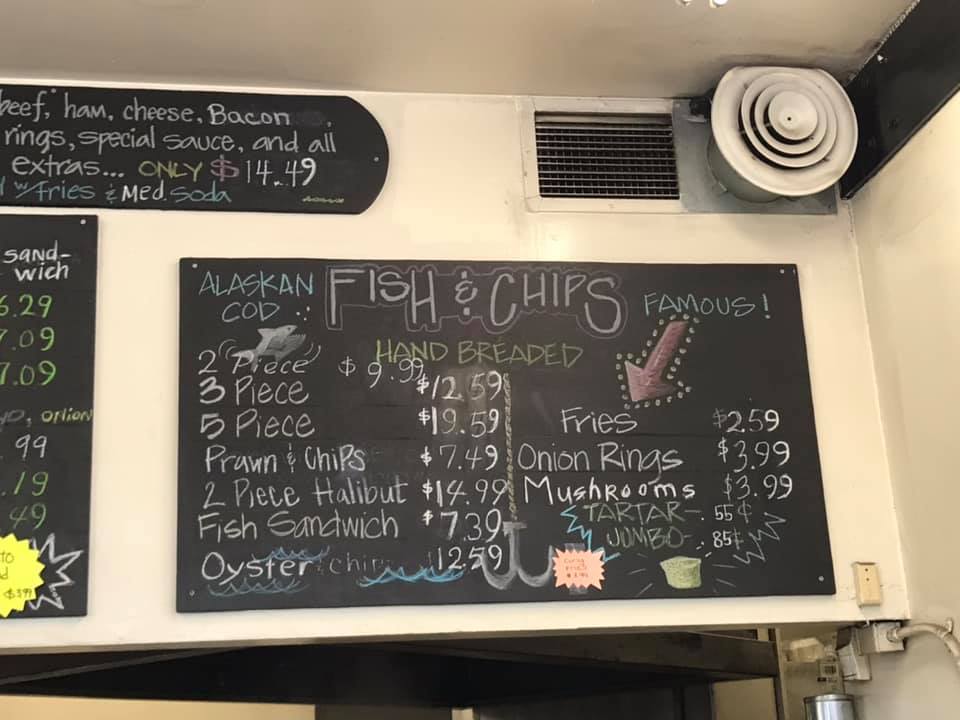 beef, ham, cheese, Bacon,
rings, special sauce, and all
extras... ONLY $14.49
w/fries & Med. Soda
sand-
wich
6.29
7.09
7.09
onion
99
.19
49
to
$3.99
ALASKAN COD
FISH & CHIPS
FAMOUS!
HAND BREADED
2 Piece $9.99
3 Piece $12.59
5 Piece $19.59
Prawn & Chips $7.49
2 Piece Halibut $14.99
Fish Sandwich $7.39
Oyster & chips 12.59
Fries $2.59
Onion Rings $3.99
Mushrooms $3.99
TARTAR-. 55¢
JUMBO-. 85¢
Curly
Fries
$3.99